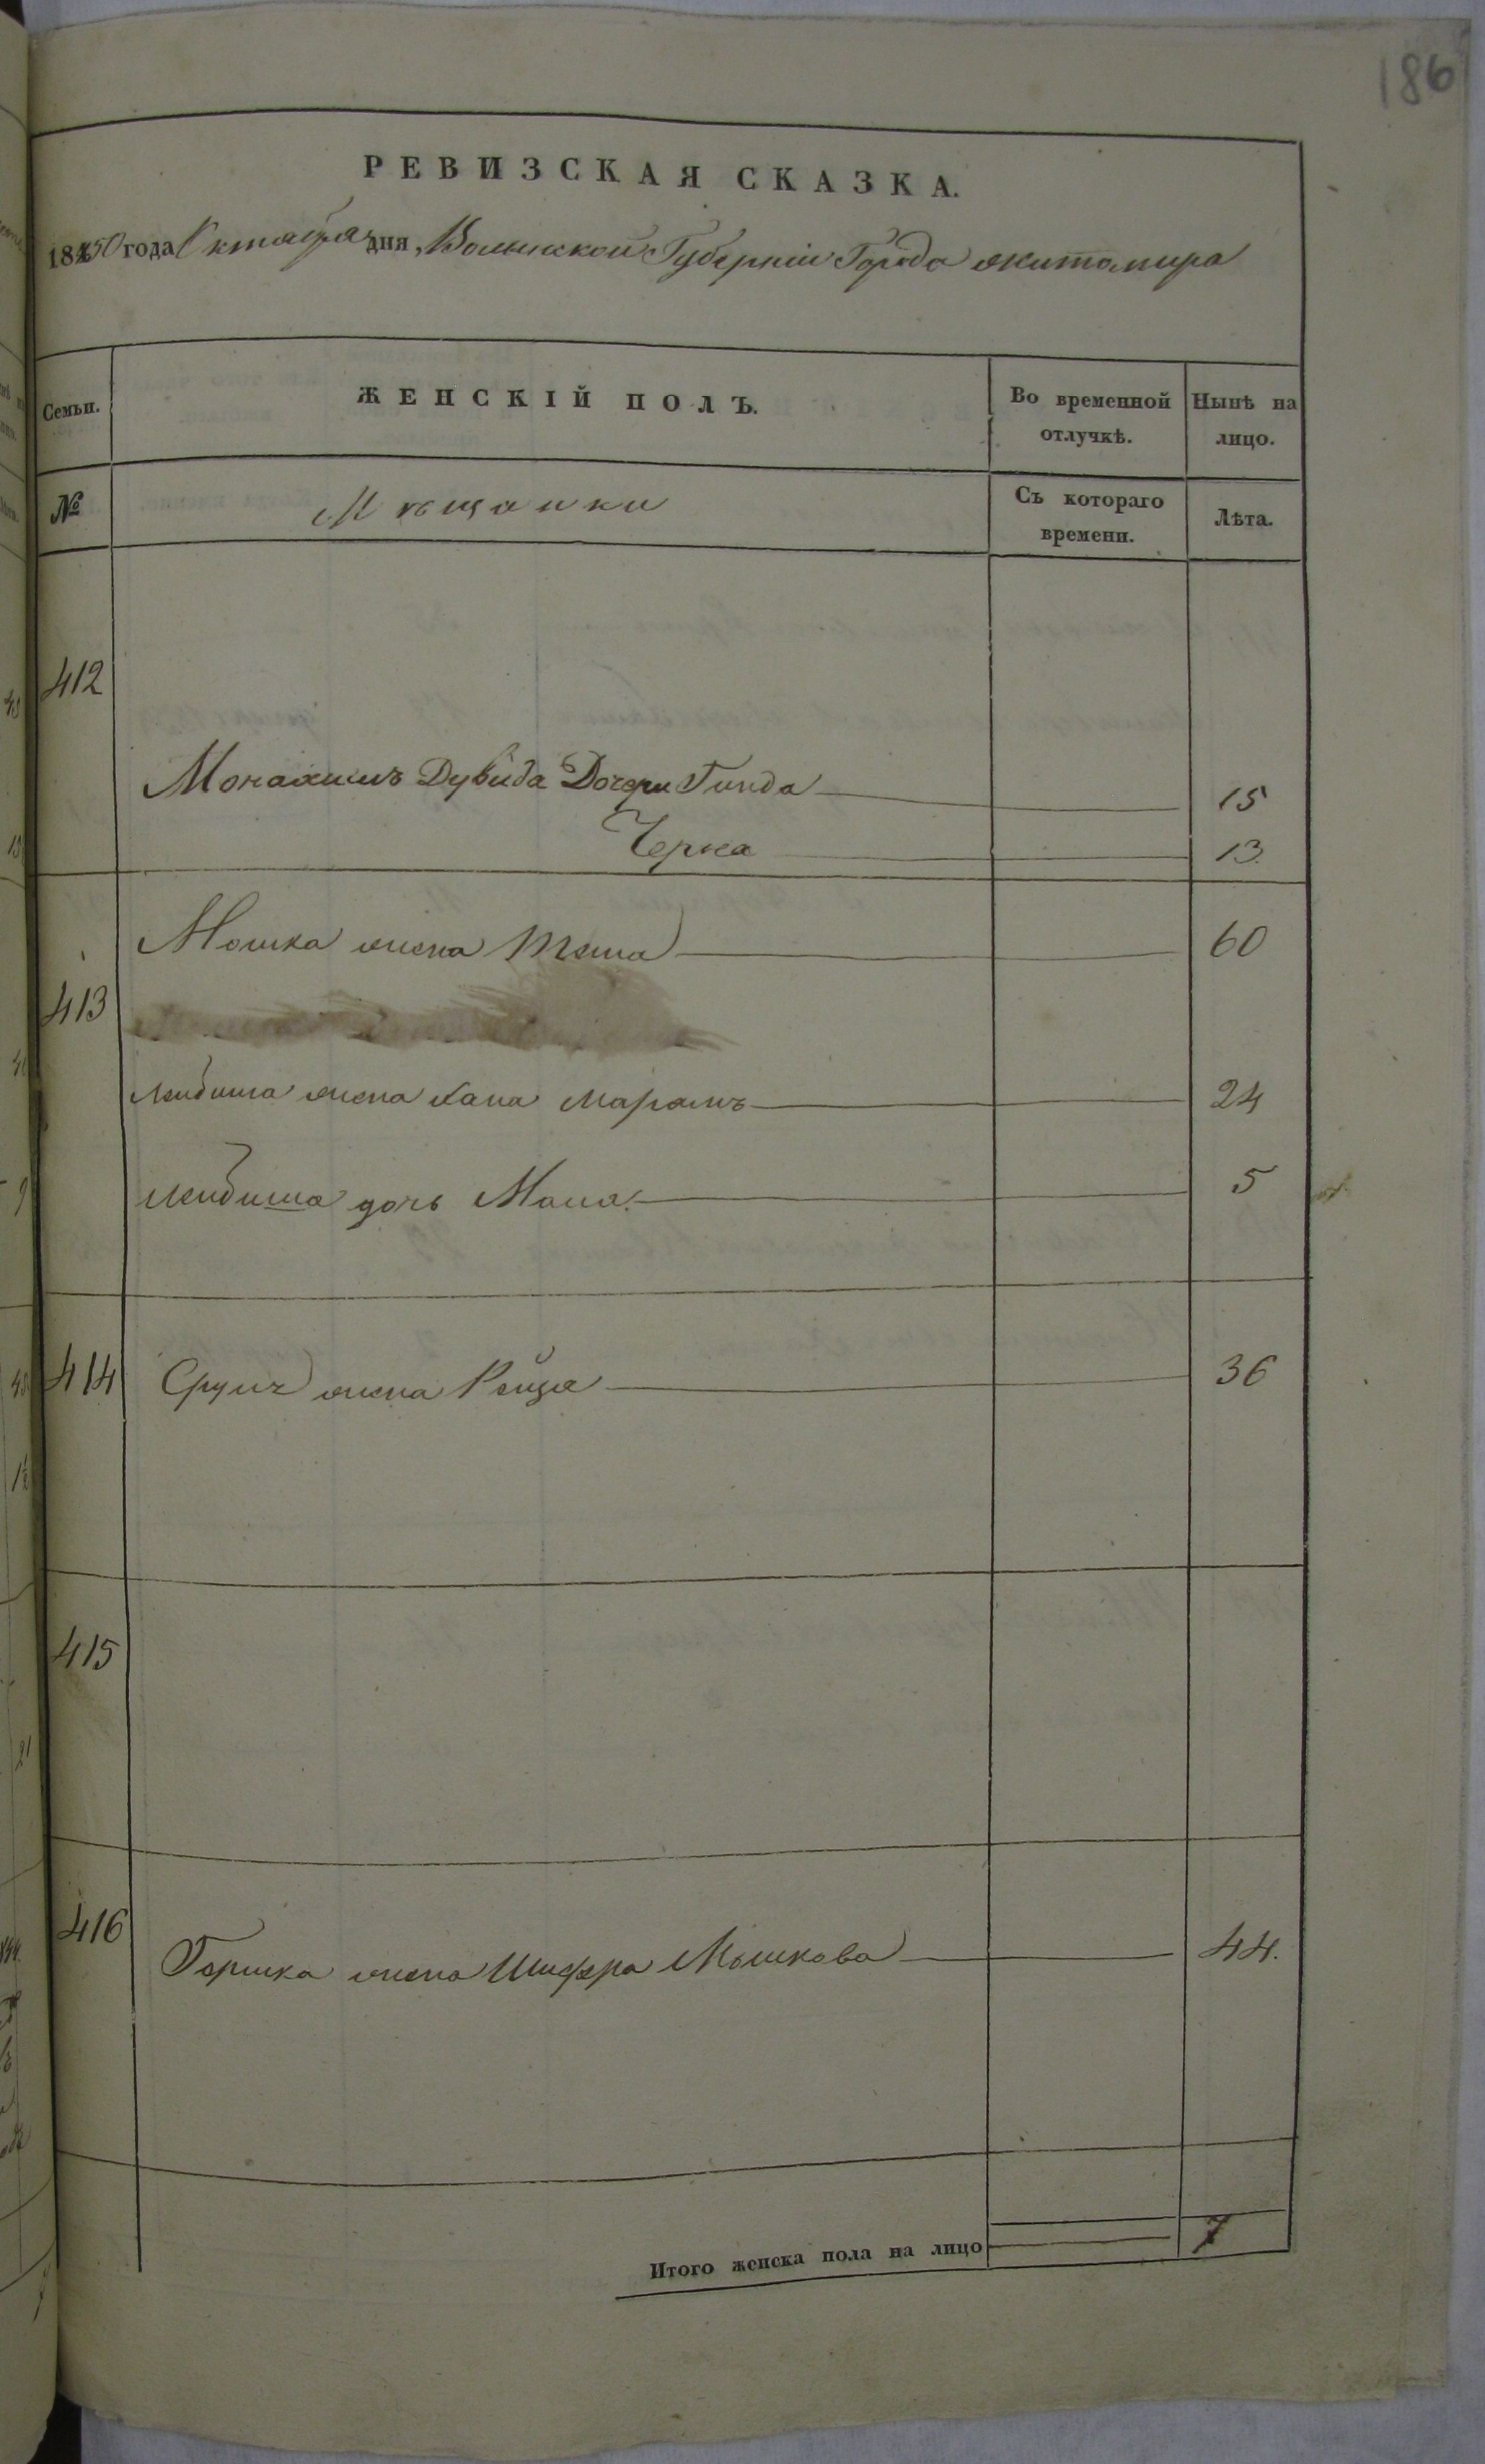 186
РЕВИЗСКАЯ СКАЗКА.
1850 года Октября дня, Волынской Губерніи Города Житомира
Семьи.
ЖЕНСКІЙ ПОЛЪ.
Во временной
отлучкѣ.
Нынѣ на
лицо.
№
Мѣщанки
Съ котораго
времени.
Лѣта.
412
Монахимъ Дувида Дочери Гинда 15
Черна 13.
Мошка жена 60
413
жена Хана Маримъ 24
дочь 5
414 Срулъ жена Рейзя 36
415
416
Гершка жена Шифра Мошкова 44.
Итого женска пола на лицо 7